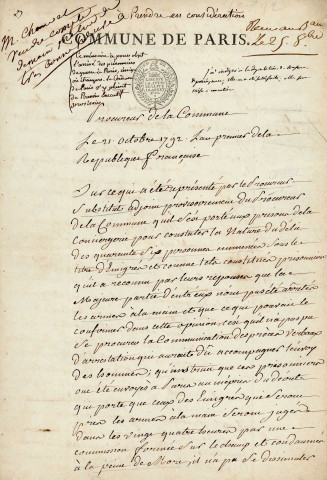 Prendre en considération
COMMUNE DE PARIS.
Procureur de la Commune
Le 21. octobre 1792. L'an premier de la
Republique française
Sur ce qui a été représenté par le Procureur
Substitut adjoint provisoirement du Procureur
de la Commune qu'il s'est porté aux prisons de la
Conciergerie pour constater la Nature du délit
des quarante Six personnes emmenées sous le
titre d'Emigrés et comme tels constitués prisonniers
qu'il a reconnu par leurs réponses que la
Majeure partie d'entr'eux n'ont pas été arrêtés
les armes à la main et que ce qui pouvait le
confirmer dans cette opinion c'est qu'il n'a pas pu
Se procurer la Communication des procès Verbaux
d'arrestation qui auraient dû accompagner l'envoy
des hommes; qu'instruit que ces prisonniers
ont été envoyés à Paris au mépris du décret
qui porte que ceux des Emigrés qui seront
pris les armes à la main seront jugés
dans les vingt quatre heures par une
commission formée sur le champ et condamnés
à la peine de Mort, il n'a pu se dissimuler